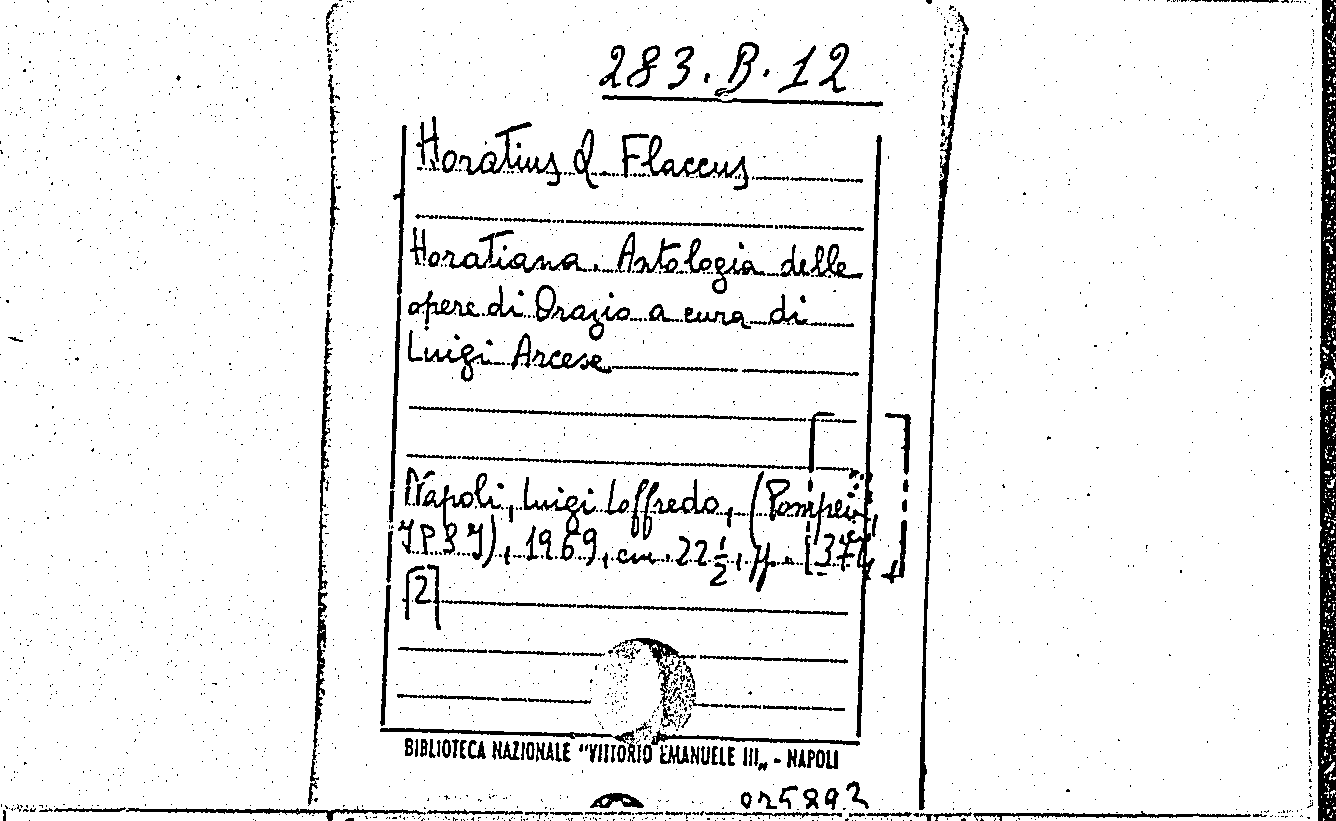 283.B.12
Horatius Q. Flaccus
Horatiana. Antologia delle
opere di Orazio a cura di
Luigi Arcese
Napoli, Luigi Loffredo, (Pompei,
IPSI), 1969, cm. 22 1/2, pp. [37
[2]
BIBLIOTECA NAZIONALE "VITTORIO EMANUELE III„ - NAPOLI
025892